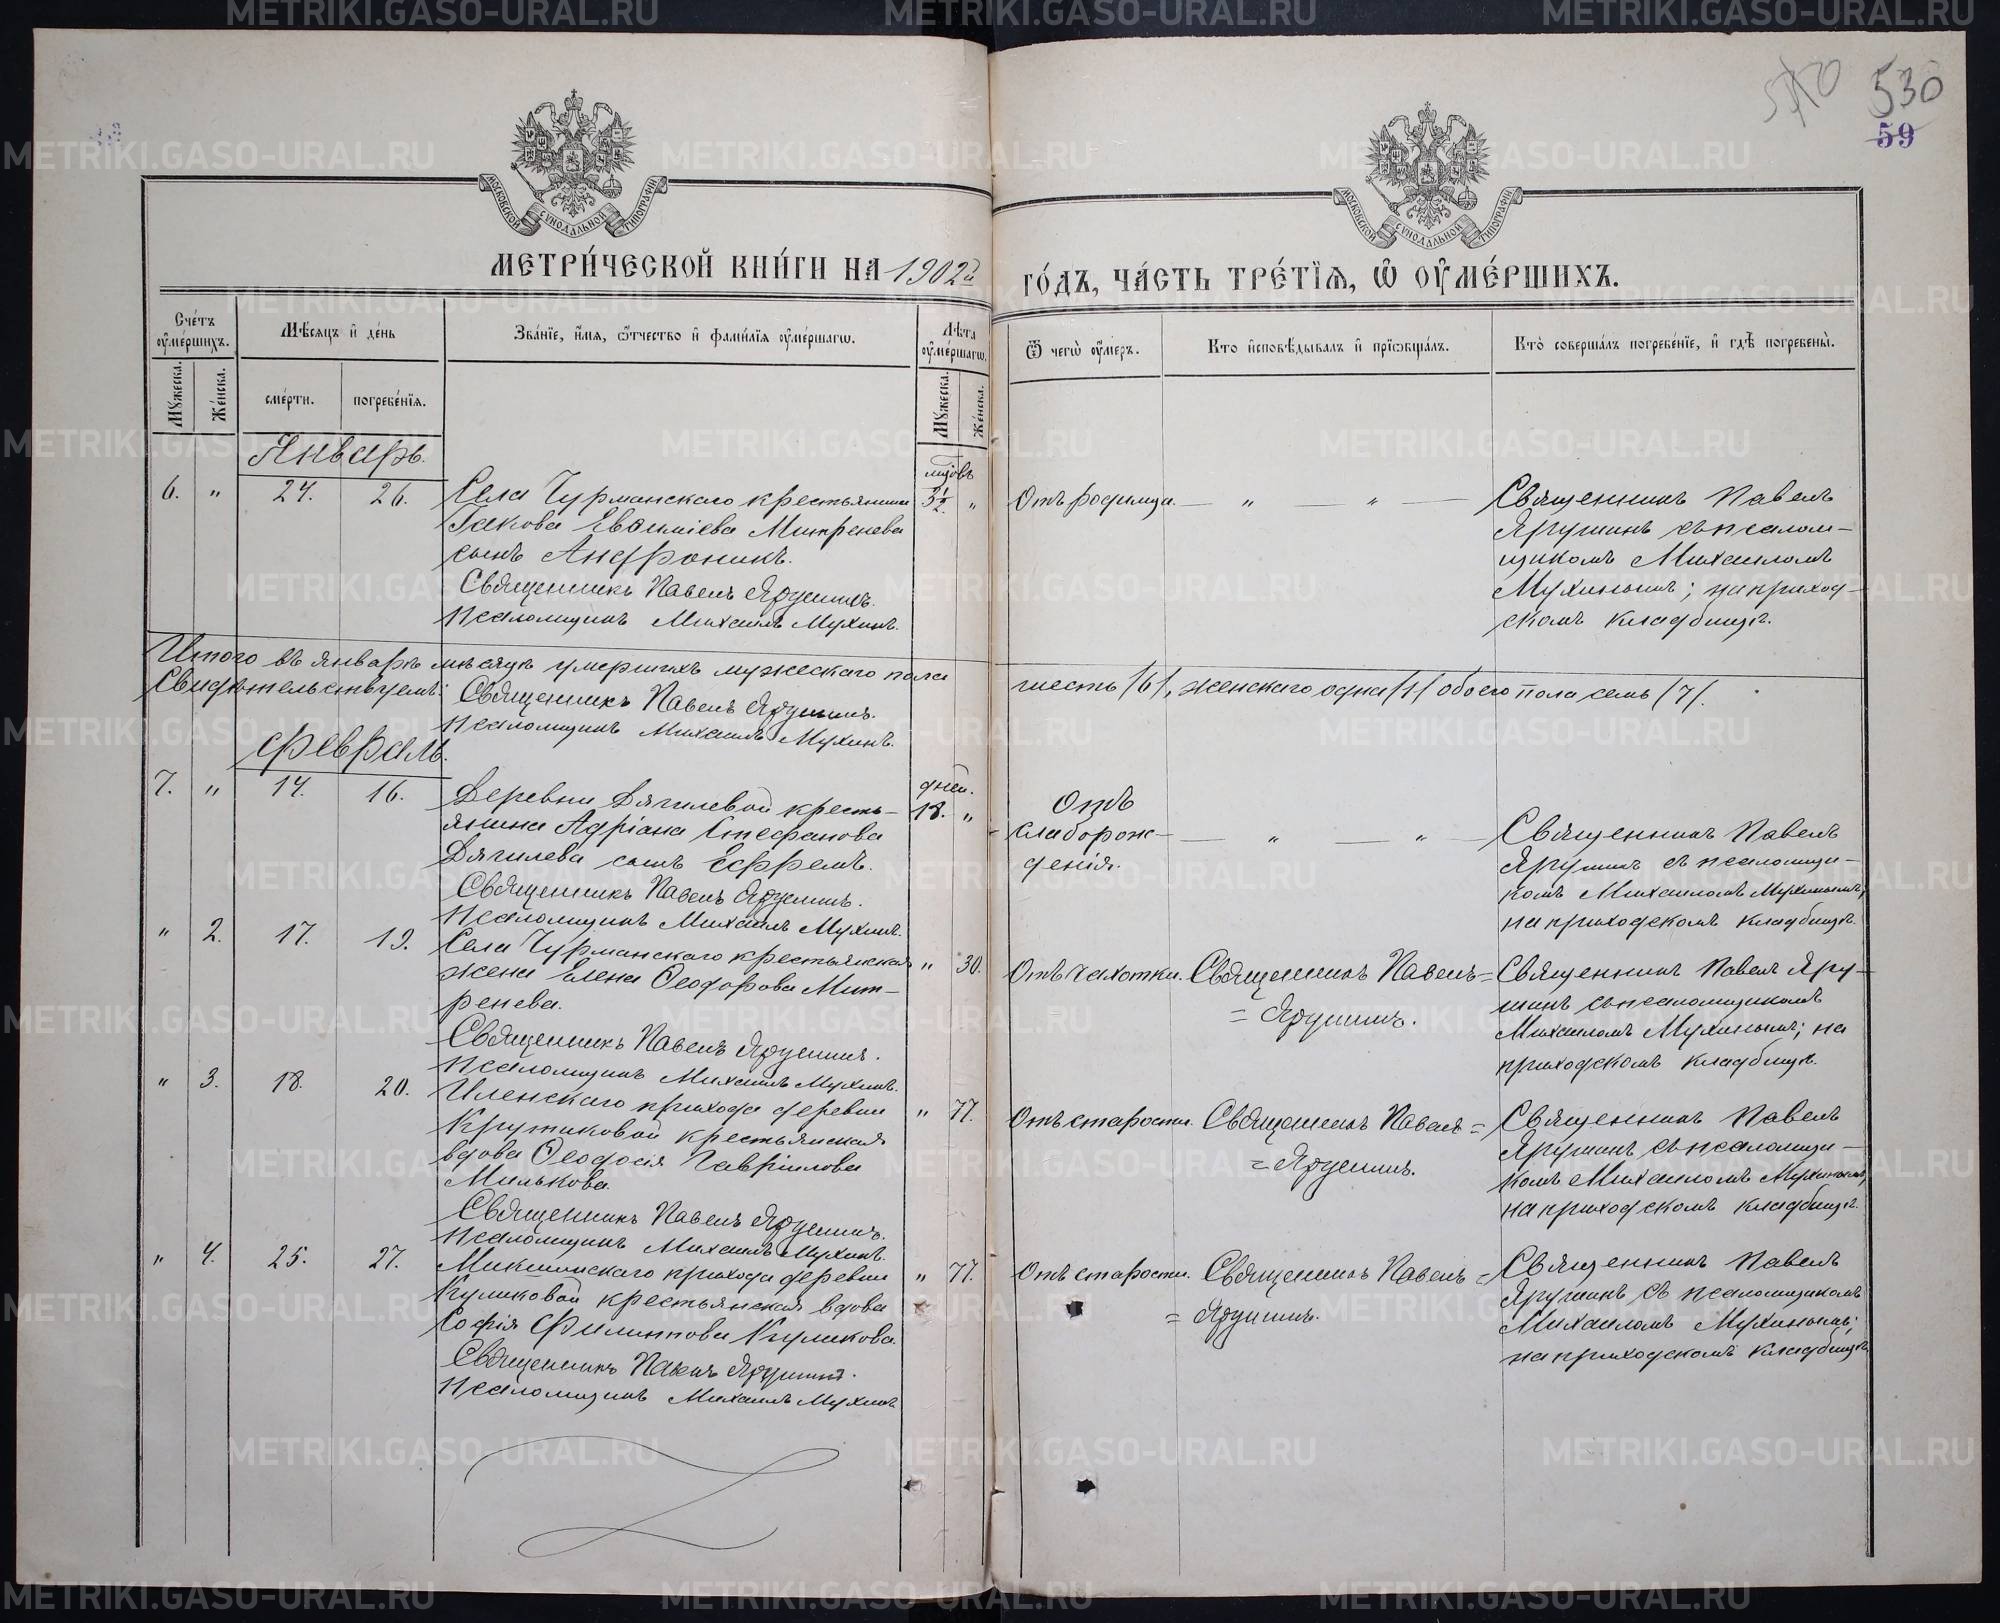 530
59
МОСКОВСКОЙ СУНОДАЛЬНОЙ ТИПОГРАФІИ
МОСКОВСКОЙ СУНОДАЛЬНОЙ ТИПОГРАФІИ
МЕТРИ́ЧЕСКОЙ КНИ́ГИ НА 1902й
ГО́ДЪ, ЧА́СТЬ ТРЕ́ТІѦ, Ѡ ОУМЕ́РШИХЪ.
Сче́тъ оуме́ршихъ.
Мѣ́сяцъ и де́нь
Зва́ніе, и́мя, ѻтчество и фами́лія оуме́ршагѡ.
Лѣта оуме́ршагѡ.
Ѿ чегѡ̀ оу́меръ.
Кто̀ исповѣ́дывалъ и пріѡбща́лъ.
Кто̀ соверша́лъ погребе́ніе, и гдѣ̀ погребены̀.
Мꙋжеска.
Же́нска.
сме́рти.
погребе́нія.
Мꙋжеска.
Же́нска.
Январь.
6. " 24. 26.
Села Чурманскаго крестьянина
Іакова Евѳиміева Митренева
сынъ Андроникъ.
Священникъ Павелъ Ярушинъ.
Псаломщикъ Михаилъ Мухинъ.
мцовъ
3½ "
Отъ родимца. — " — " —
Священникъ Павелъ
Ярушинъ съ псалом-
щикомъ Михаиломъ
Мухинымъ; на приход-
скомъ кладбищѣ.
Итого въ январѣ мѣсяцѣ умершихъ мужескаго пола
шесть /6/, женскаго одна /1/ обоего пола семь /7/.
Свидѣтельствуемъ:
Священникъ Павелъ Ярушинъ.
Псаломщикъ Михаилъ Мухинъ.
Февраль.
7. " 14. 16.
Деревни Дягилевой кресть-
янина Адріана Стефанова
Дягилева сынъ Ефремъ.
Священникъ Павелъ Ярушинъ.
Псаломщикъ Михаилъ Мухинъ.
дней.
18. "
Отъ
слаборож-
денія.
— " — " —
Священникъ Павелъ
Ярушинъ съ псаломщи-
комъ Михаиломъ Мухинымъ,
на приходскомъ кладбищѣ.
" 2. 17. 19.
Села Чурманскаго крестьянская
жена Елена Ѳеодорова Мит-
ренева.
Священникъ Павелъ Ярушинъ.
Псаломщикъ Михаилъ Мухинъ.
" 30.
Отъ чахотки.
Священникъ Павелъ =
= Ярушинъ.
Священникъ Павелъ Яру-
шинъ съ псаломщикомъ
Михаиломъ Мухинымъ; на
приходскомъ кладбищѣ.
" 3. 18. 20.
Иленскаго прихода деревни
Крутиковой крестьянская
вдова Ѳеодосія Гавріилова
Милькова.
Священникъ Павелъ Ярушинъ.
Псаломщикъ Михаилъ Мухинъ.
" 77.
Отъ старости.
Священникъ Павелъ =
= Ярушинъ.
Священникъ Павелъ
Ярушинъ съ псаломщи-
комъ Михаиломъ Мухинымъ,
на приходскомъ кладбищѣ.
" 4. 25. 27.
Микшинскаго прихода деревни
Куликовой крестьянская вдова
Софія Филиппова Куликова.
Священникъ Павелъ Ярушинъ.
Псаломщикъ Михаилъ Мухинъ
" 77.
Отъ старости.
Священникъ Павелъ =
= Ярушинъ.
Священникъ Павелъ
Ярушинъ съ псаломщикомъ
Михаиломъ Мухинымъ;
на приходскомъ кладбищѣ
METRIKI.GASO-URAL.RU